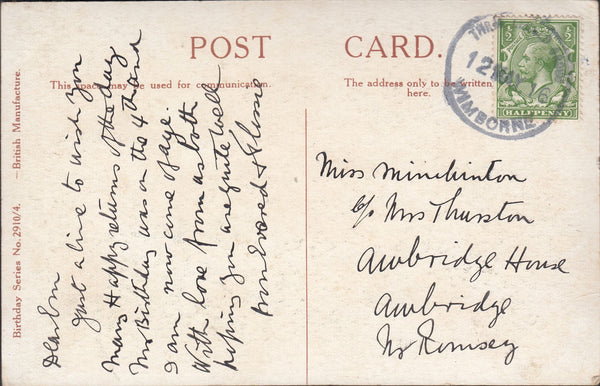 POST CARD.
This space may be used for communication.
The address only to be written here.
Birthday Series No. 2910/4. — British Manufacture.
Dear Em
Just a line to wish you
Many Happy returns of the day
My Birthday was on the 4th and
I am now of age.
With love from us both
hoping you are quite well
from &
Miss Minchinton
c/o Mrs Thurston
Awbridge House
Awbridge
Nr Romsey
12
WIMBORNE
½ ½
HALFPENNY